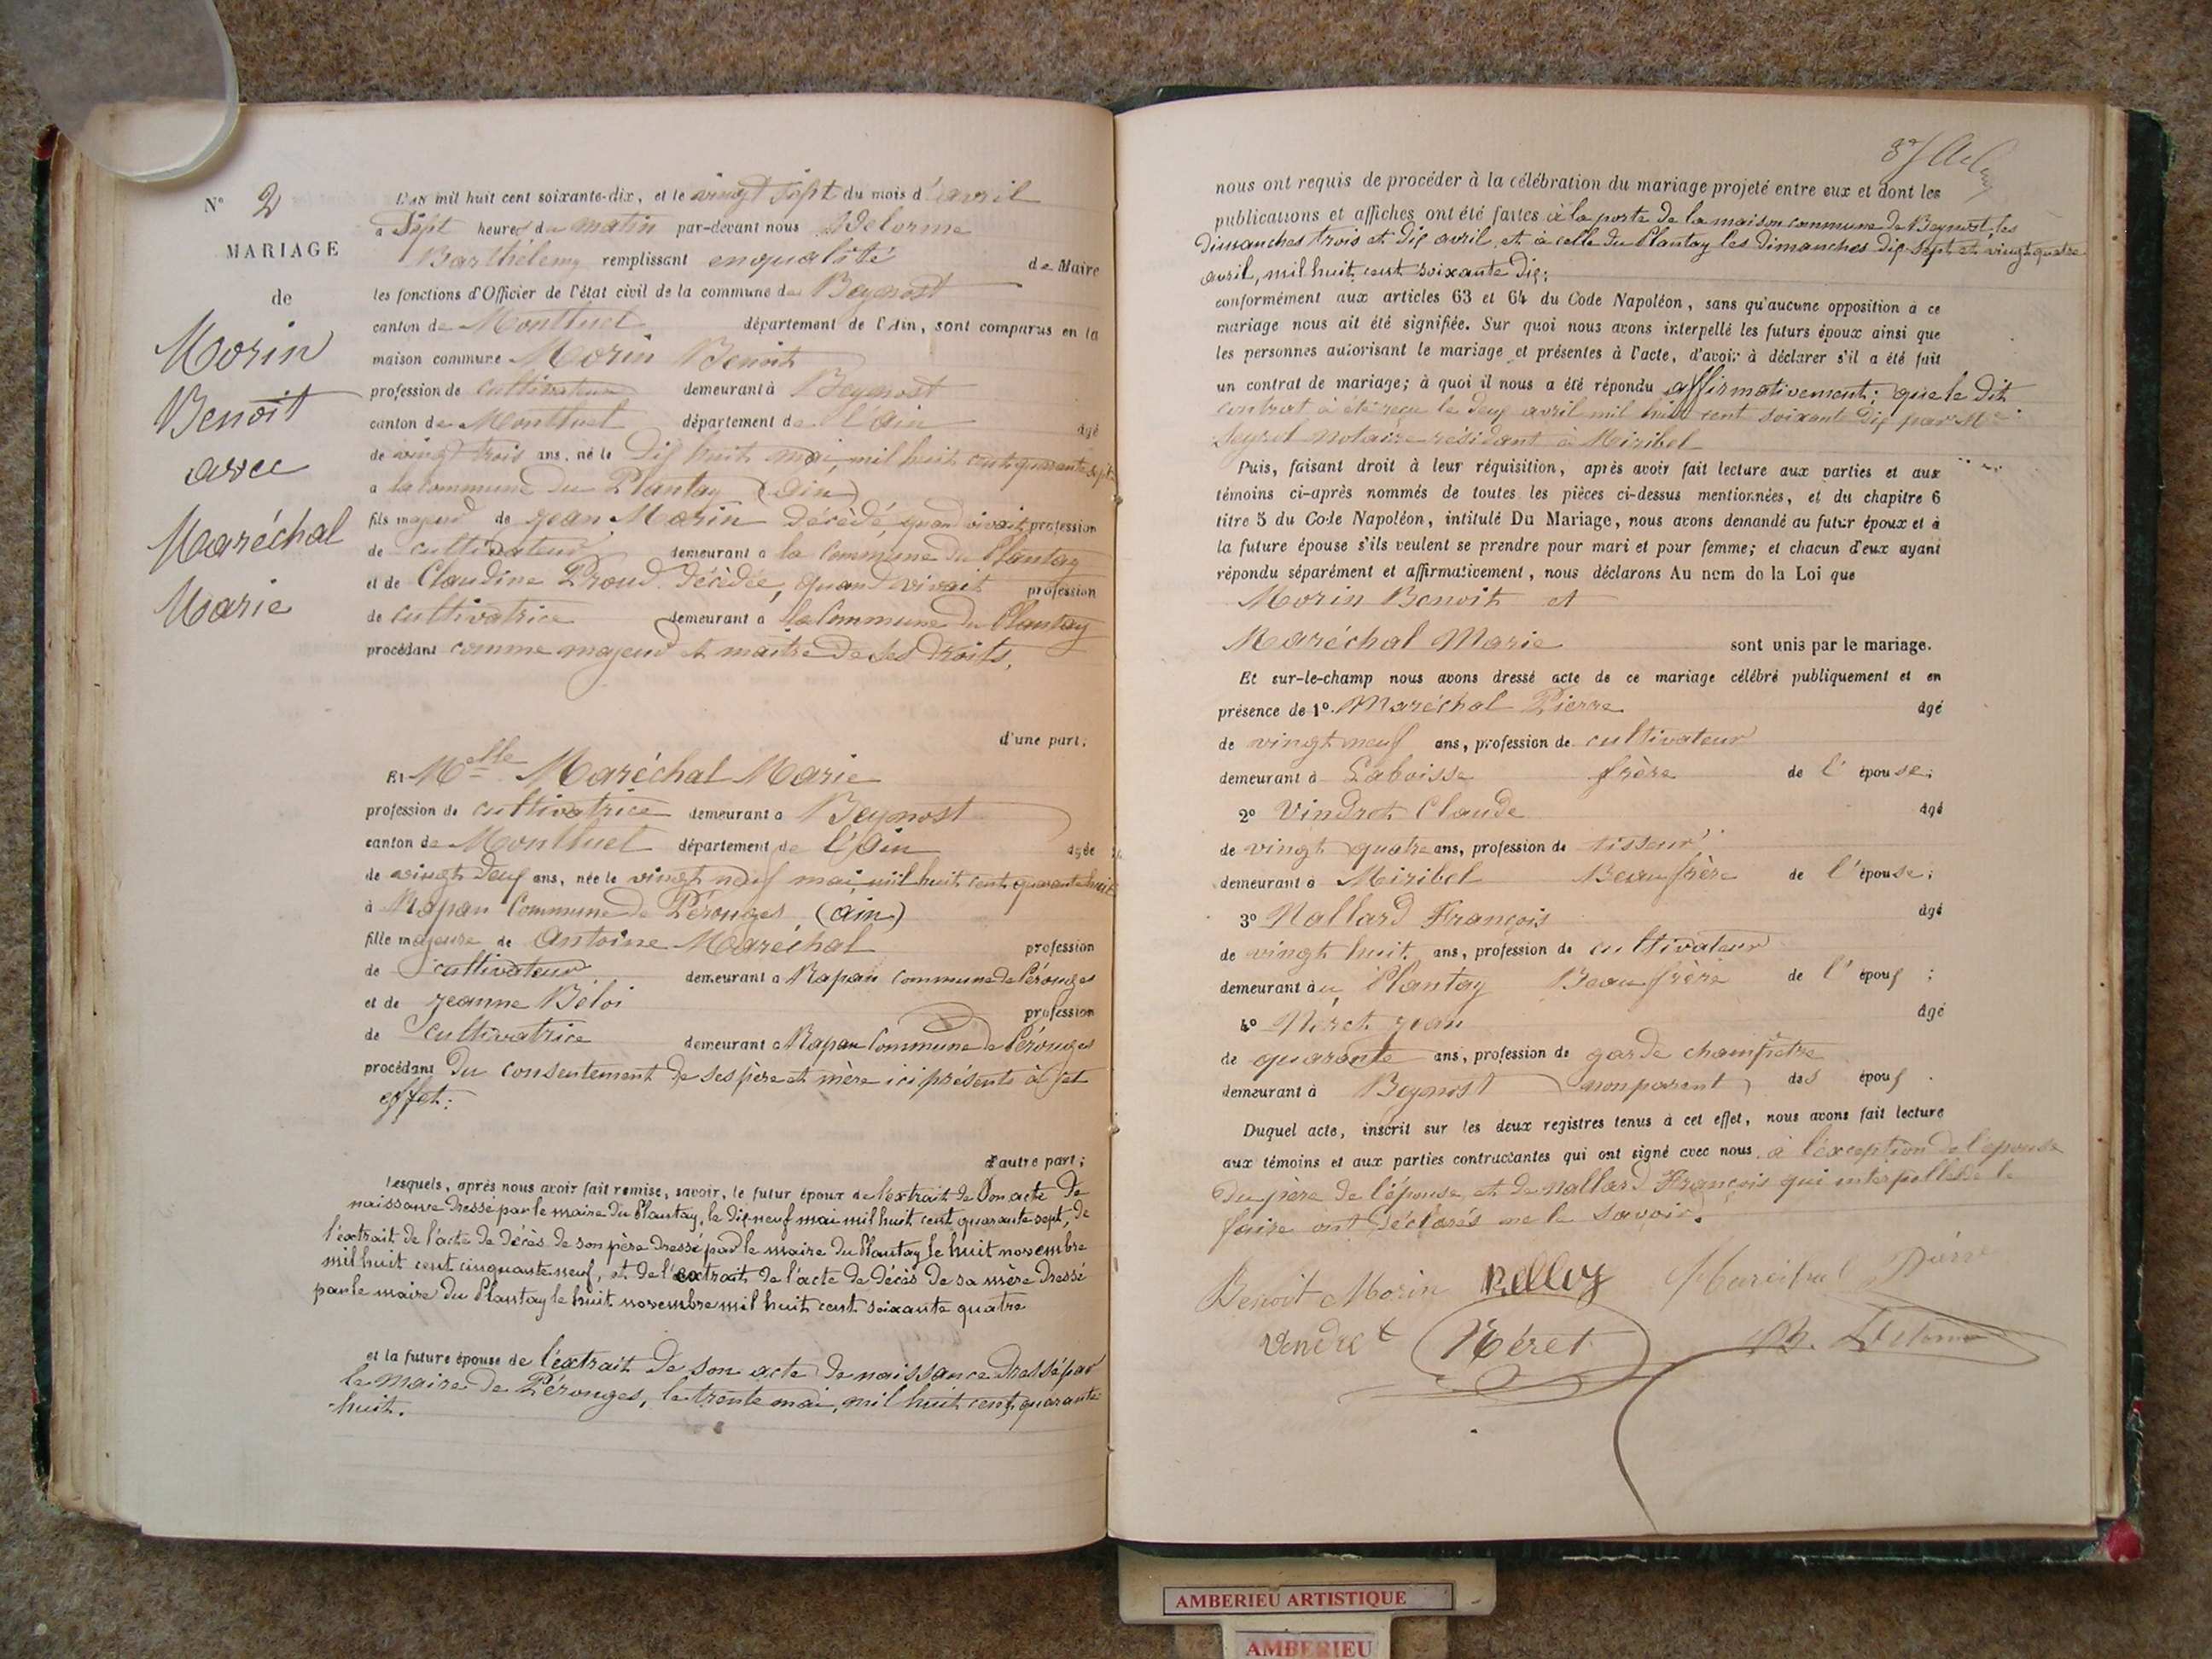 N° 2
MARIAGE
de
Morin
Benoît
avec
Maréchal
Marie
L'an mil huit cent soixante-dix, et le vingt sept du mois d'avril
à Sept heures du matin par-devant nous Delorme
Barthélemy remplissant en qualité de Maire
les fonctions d'Officier de l'état civil de la commune de Beynost
canton de Montluel département de l'Ain, sont comparus en la
maison commune Morin Benoit
profession de cultivateur demeurant à Beynost
canton de Montluel département de l'Ain âgé
de vingt trois ans, né le Dix huit mai, mil huit cent quarante sept
à la commune du Plantay (Ain)
fils majeur de Jean Morin Décédé, quand vivait profession
de cultivateur demeurant à la Commune du Plantay
et de Claudine Proud Décédée, quand vivait profession
de cultivatrice demeurant à la Commune du Plantay
procédant comme majeur et maître de ses droits,
d'une part;
Et Melle Maréchal Marie
profession de cultivatrice demeurant à Beynost
canton de Montluel département de l'Ain âgée
de vingt deux ans, née le vingt neuf mai mil huit cent quarante huit
à Rapan Commune de Pérouges (Ain)
fille majeure de Antoine Maréchal profession
de cultivateur demeurant à Rapan commune de Pérouges
et de Jeanne Béloi profession
de cultivatrice demeurant à Rapan Commune de Pérouges
procédant Du consentement de ses père et mère ici présents à cet
effet:
d'autre part;
Lesquels, après nous avoir fait remise, savoir, le futur époux de l'extrait de Son acte de
naissance Dressé par le maire du Plantay, le dix neuf mai mil huit cent quarante sept, de
l'extrait de l'acte de décès de son père Dressé par le maire du Plantay le huit novembre
mil huit cent cinquante neuf, et de l'extrait de l'acte de décès de sa mère Dressé
par le maire du Plantay le huit novembre mil huit cent soixante quatre
et la future épouse de l'extrait de son acte de naissance Dressé par
le Maire de Pérouges, le trente mai, mil huit cent quarante
huit.
nous ont requis de procéder à la célébration du mariage projeté entre eux et dont les
publications et affiches ont été faites à la porte de la maison commune de Beynost, les
Dimanches trois et dix avril, et à celle du Plantay les dimanches dix sept et vingt quatre
avril, mil huit cent soixante dix;
conformément aux articles 63 et 64 du Code Napoléon, sans qu'aucune opposition à ce
mariage nous ait été signifiée. Sur quoi nous avons interpellé les futurs époux ainsi que
les personnes autorisant le mariage et présentes à l'acte, d'avoir à déclarer s'il a été fait
un contrat de mariage; à quoi il nous a été répondu affirmativement; que le dit
contrat à été reçu le deux avril mil huit cent soixante dix par Me
notaire résidant à Miribel
Puis, faisant droit à leur réquisition, après avoir fait lecture aux parties et aux
témoins ci-après nommés de toutes les pièces ci-dessus mentionnées, et du chapitre 6
titre 5 du Code Napoléon, intitulé Du Mariage, nous avons demandé au futur époux et à
la future épouse s'ils veulent se prendre pour mari et pour femme; et chacun d'eux ayant
répondu séparément et affirmativement, nous déclarons Au nom de la Loi que
Morin Benoit et
Maréchal Marie sont unis par le mariage.
Et sur-le-champ nous avons dressé acte de ce mariage célébré publiquement et en
présence de 1° Maréchal Pierre âgé
de vingt neuf ans, profession de cultivateur
demeurant à Laboisse frère de l'épouse;
2° Vindret Claude âgé
de vingt quatre ans, profession de tisseur
demeurant à Miribel Beau frère de l'épouse;
3° Nallard François âgé
de vingt huit ans, profession de cultivateur
demeurant au Plantay Beau frère de l'époux;
4° Néret Jean âgé
de quarante ans, profession de garde champêtre
demeurant à Beynost non parent des époux.
Duquel acte, inscrit sur les deux registres tenus à cet effet, nous avons fait lecture
aux témoins et aux parties contractantes qui ont signé avec nous à l'exception de l'épouse
Du père de l'épouse, et de Nallard François qui interpellés de le
faire ont déclarés ne le savoir.
Benoit Morin Belloy Marechal Pierre
Vendret Néret B. Delorme
AMBERIEU ARTISTIQUE
AMBERIEU